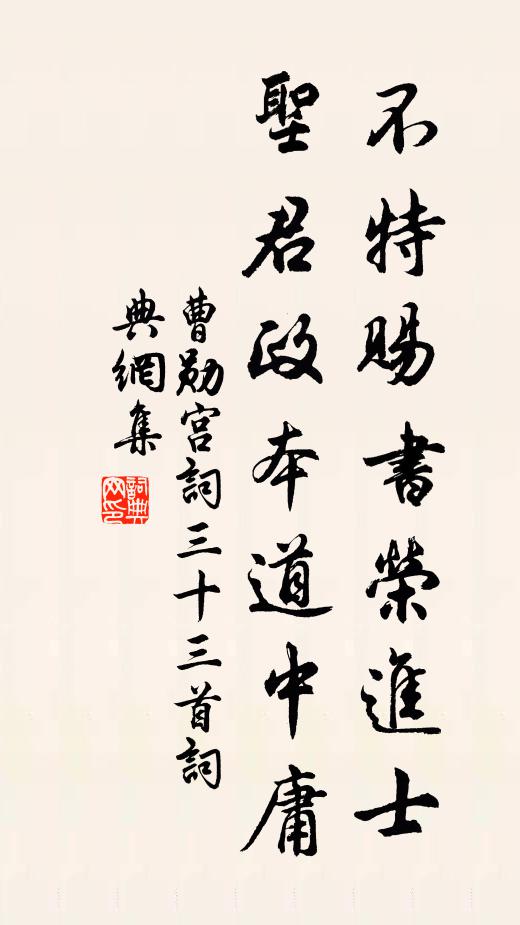 不特賜書榮進士
聖君政本道中庸
曹勛宮詞三十三首詞
典網集
詞典網印